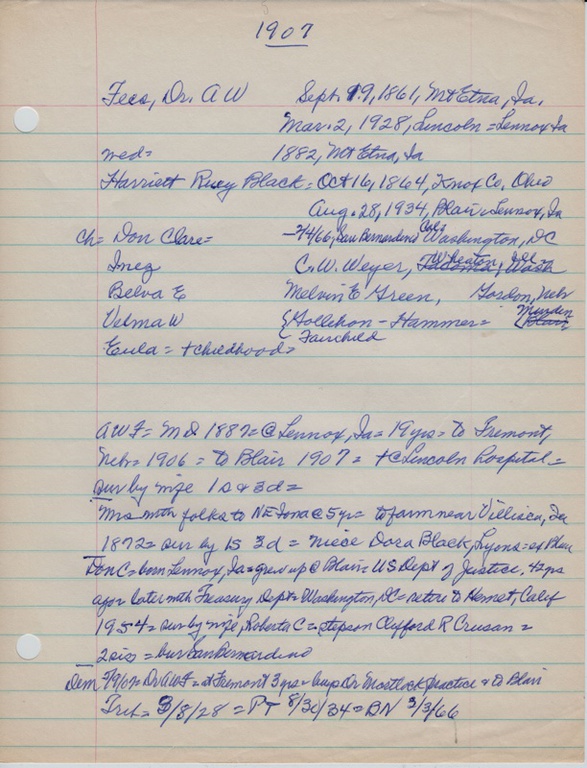 1907
Fees, Dr. A W Sept. 19, 1861, Mt Etna, Ia.
Mar. 2, 1928, Lincoln = Lennox Ia
med= 1882, Mt Etna, Ia
Harriett Black = Oct 16, 1864, Knox Co, Ohio
Aug. 28, 1934, Blair = Lennox, Ia
ch = Don Clare = -2/4/66, San Bernardino Cal= Washington, DC
Inez C. W. Weyer, Wheaton, Ill
Belva E Melvin E Green, Gordon, Nebr
Velma W {Gollehon - Hammer =
Fairchild
Eula = + childhood =
AWF = Md 1887 = @ Lennox, Ia = 19 yrs = to Fremont,
Nebr = 1906 = to Blair 1907 = + @ Lincoln hospital =
sur by wife 1 s & 3 d =
Mrs with folks to NE Iowa @ 5 yr = to farm near Villisca, Ia
1872 = sur by 1S 3d = niece Dora Black, Lyons = ex Blair
Don C = born Lennox, Ia = grew up @ Blair = US Dept of Justice, 42 yrs
ago = later with Treasury Dept = Washington, DC = retire to Hemet, Calif
1954 = sur by wife, Roberta C = stepson Clifford R Crusan =
2 sis = bur San Bernardino
Dem 7/9/07 = Dr AWF = at Fremont 3 yrs = buys Dr Mostlock practice & to Blair
Trib = 3/8/28 = PT 8/30/34 = BN 3/3/66